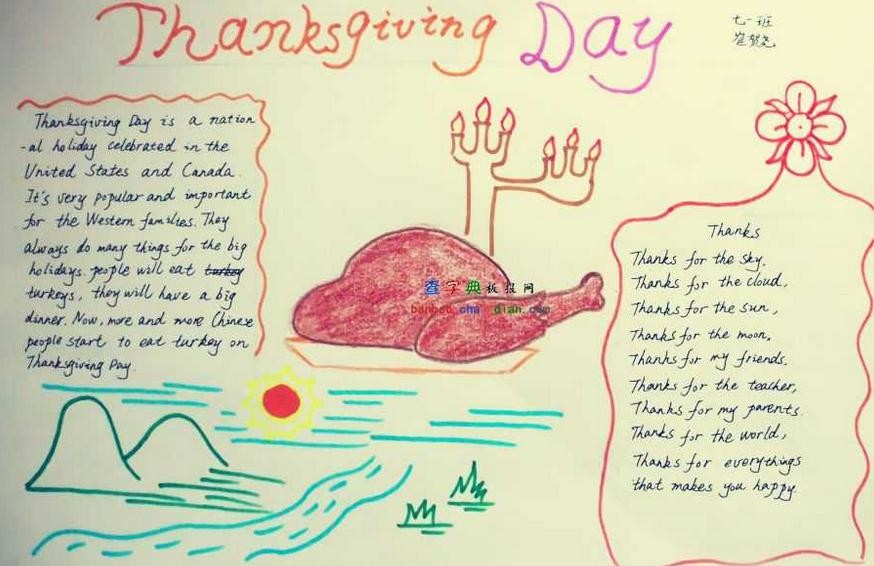 Thanksgiving Day
七一班
Thanksgiving Day is a nation
-al holiday celebrated in the
United States and Canada.
It's very popular and important
for the Western families. They
always do many things for the big
holidays. people will eat turkey
turkeys, they will have a big
dinner. Now, more and more Chinese
people start to eat turkey on
Thanksgiving Day.
查字典板报网
Thanks
Thanks for the sky.
Thanks for the cloud,
Thanks for the sun,
Thanks for the moon,
Thanks for my friends.
Thanks for the teacher,
Thanks for my parents.
Thanks for the world,
Thanks for everythings
that makes you happy.